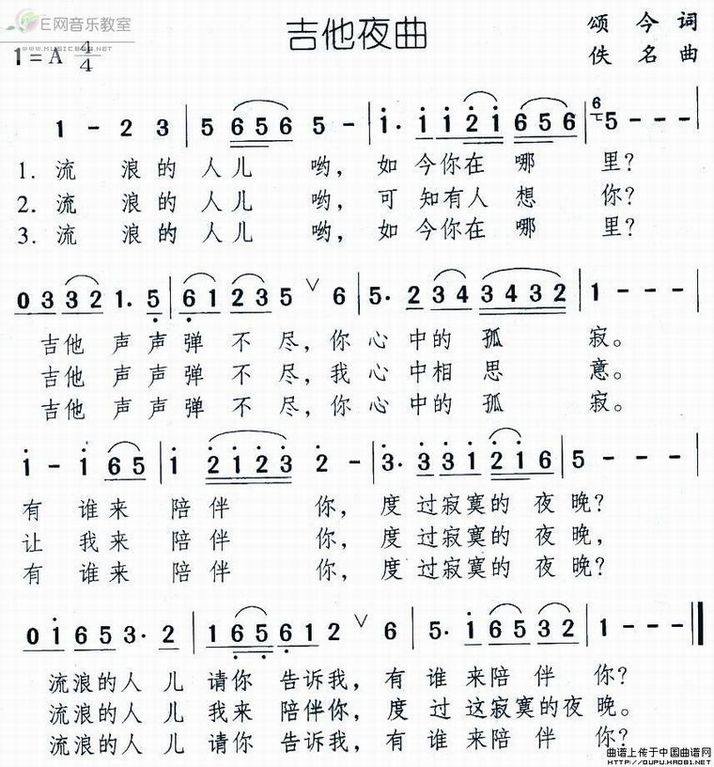 E网音乐教室
WWW.MUSICOOL.NET
吉他夜曲
颂今 词
1=A 4/4
佚名 曲
1 - 2 3 | 5 6 5 6 5 - | i· i i 2 i 6 5 6 | 6 5 - - - |
1. 流 浪 的 人 儿 哟, 如 今 你 在 哪 里?
2. 流 浪 的 人 儿 哟, 可 知 有 人 想 你?
3. 流 浪 的 人 儿 哟, 如 今 你 在 哪 里?
0 3 3 2 1· 5 | 6 1 2 3 5 ∨ 6 | 5· 2 3 4 3 4 3 2 | 1 - - - |
吉他 声 声 弹 不 尽, 你 心 中 的 孤 寂。
吉他 声 声 弹 不 尽, 我 心 中 相 思 意。
吉他 声 声 弹 不 尽, 你 心 中 的 孤 寂。
i - i 6 5 | i 2 i 2 3 2 - | 3· 3 3 i 2 i 6 | 5 - - - |
有 谁 来 陪 伴 你, 度 过 寂 寞 的 夜 晚?
让 我 来 陪 伴 你, 度 过 寂 寞 的 夜 晚,
有 谁 来 陪 伴 你, 度 过 寂 寞 的 夜 晚?
0 i 6 5 3· 2 | 1 6 5 6 1 2 ∨ 6 | 5· i 6 5 3 2 | 1 - - - ‖
流浪的 人 儿 请你 告诉我, 有 谁 来陪 伴 你?
流浪的 人 儿 我来 陪伴你, 度 过 这寂寞的夜晚。
流浪的 人 儿 请你 告诉我, 有 谁 来陪 伴 你?
曲谱上传于中国曲谱网
HTTP://QUPU.HAO81.NET